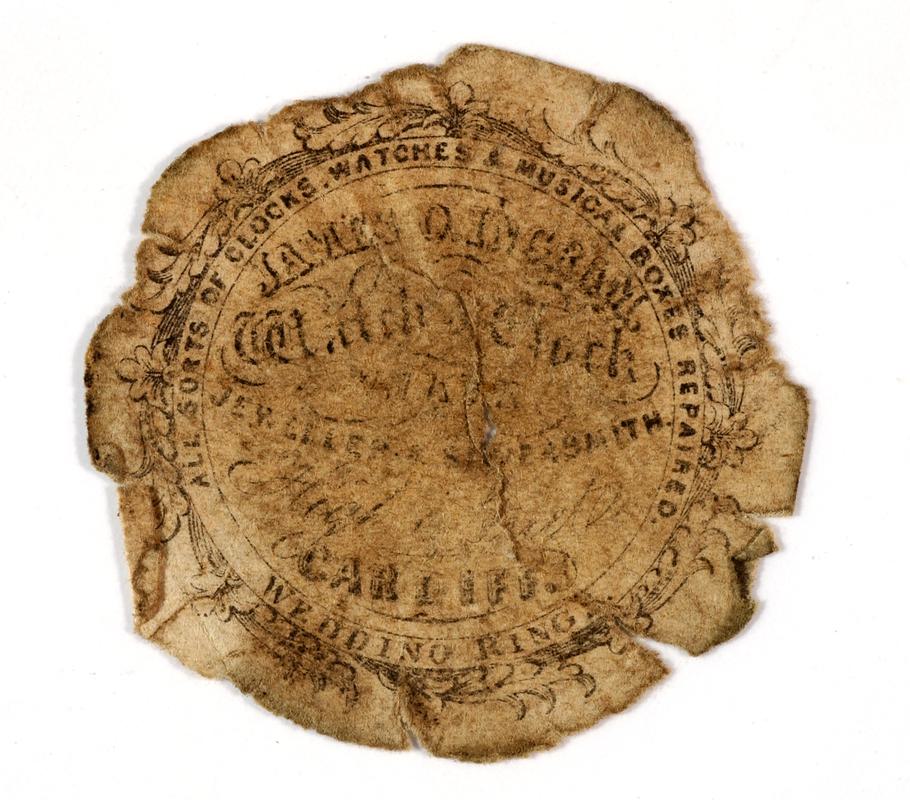 ALL SORTS OF CLOCKS. WATCHES & MUSICAL BOXES REPAIRED.
JAMES O. INGRAM
Watch & Clock
JEWELLER & SILVERSMITH.
CARDIFF.
WEDDING RING